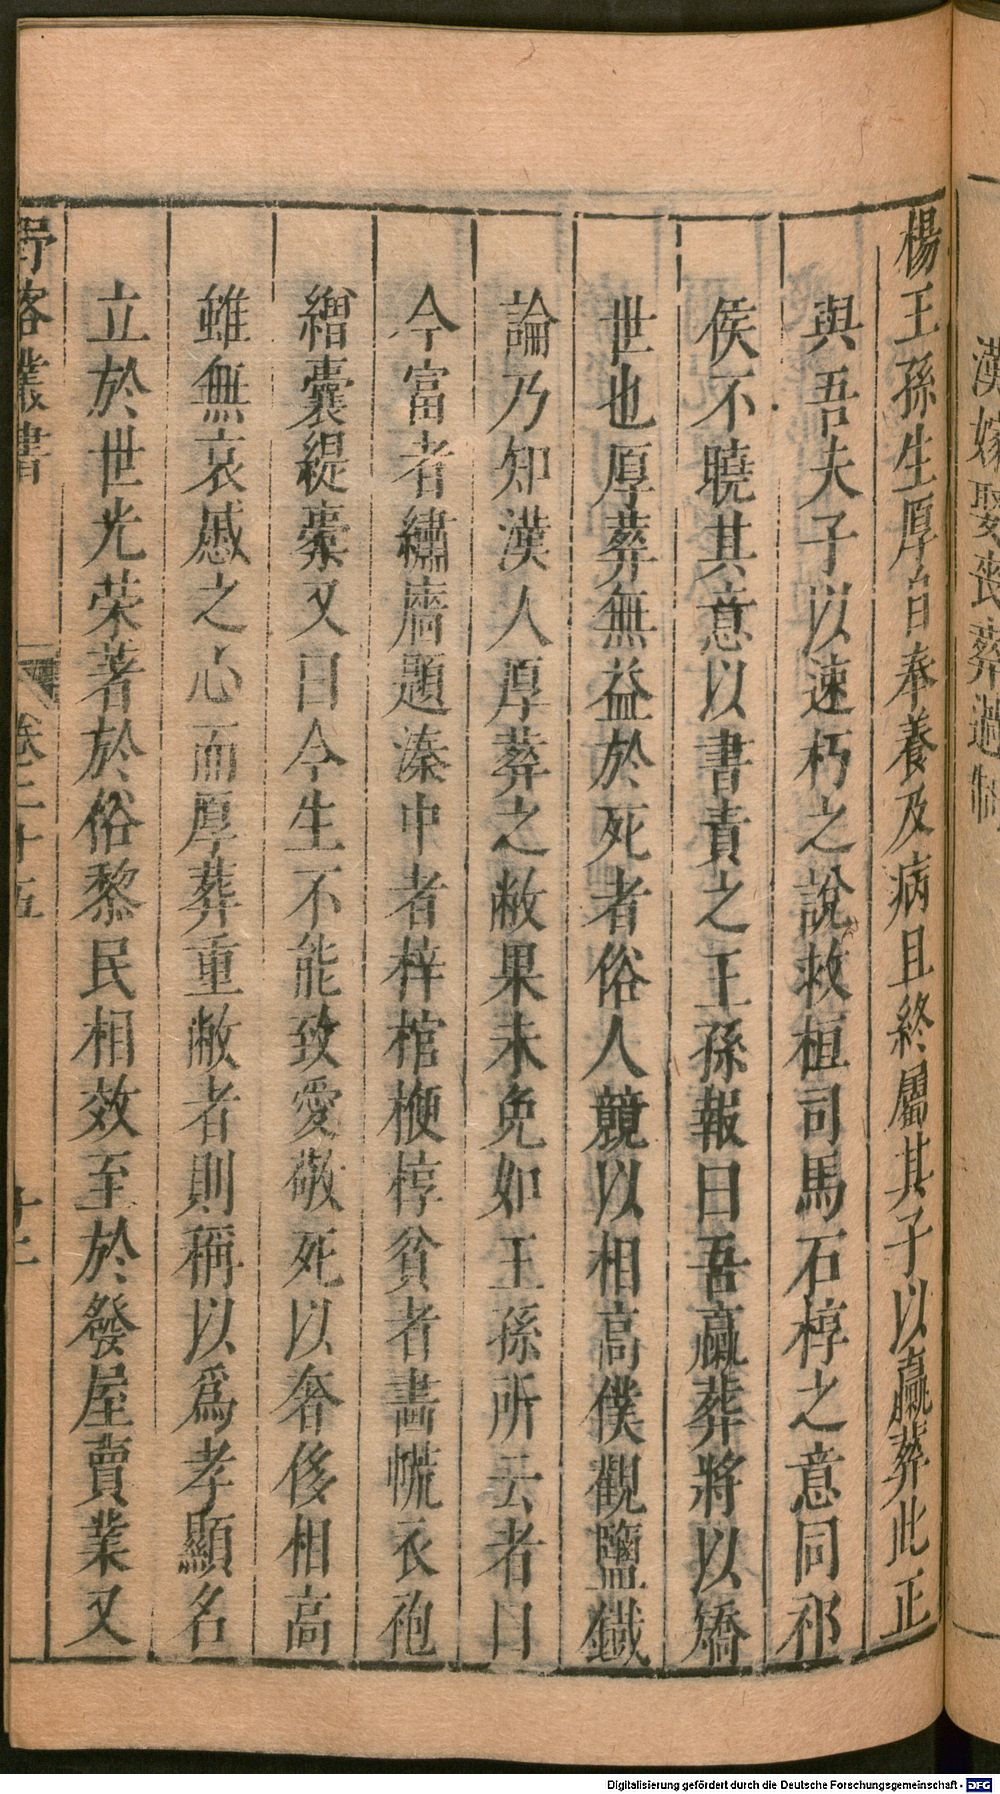 漢嫁娶喪葬過制
楊王孫生厚自奉養及病且終屬其子以臝葬此正
與吾夫子以速朽之說救桓司馬石椁之意同祁
侯不曉其意以書責之王孫報曰吾臝葬將以矯
世也厚葬無益於死者俗人競以相高僕觀鹽鐵
論乃知漢人厚葬之敝果未免如王孫所云者曰
今富者繡牆題湊中者梓棺楩椁貧者畵㡆衣袍
繒囊緹槖又曰今生不能致愛敬死以奢侈相高
雖無哀慼之心而厚葬重敝者則稱以爲孝顯名
立於世光荣著於俗黎民相效至於發屋賣業又
野客叢書
卷二十五
十二
Digitalisierung gefördert durch die Deutsche Forschungsgemeinschaft - DFG